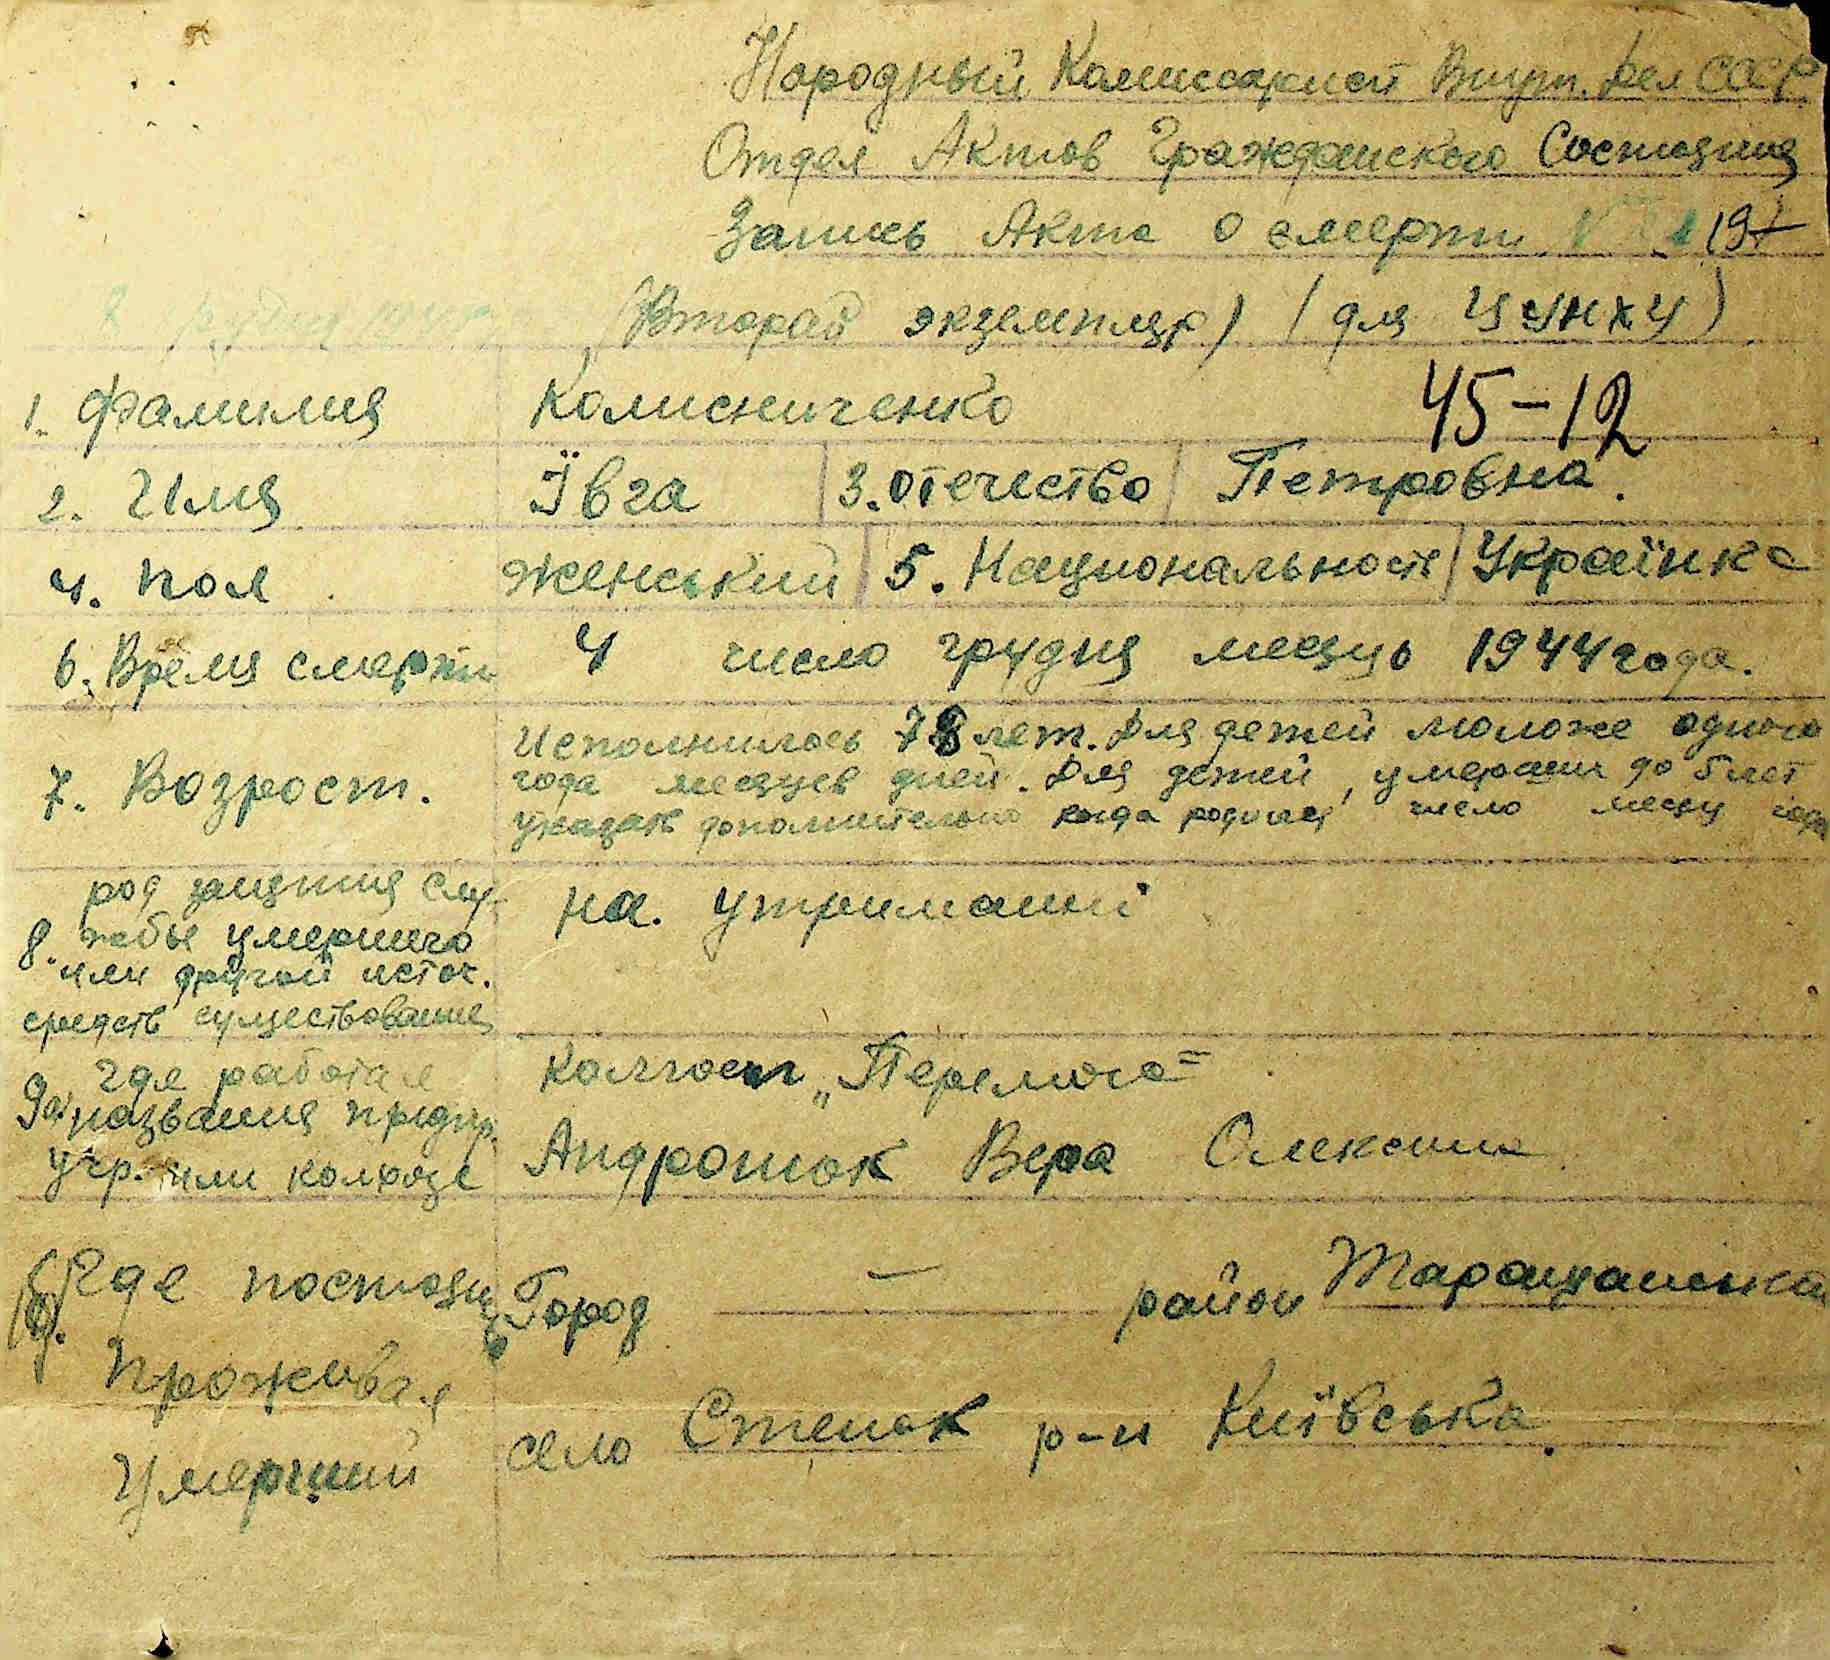 Народный Комиссариат Внутр. Дел СССР
Отдел Актов Гражданского Состояния
Запись Акта о смерти
(Второй экземпляр) (для ЦУНХУ)
45-12
1. Фамилия Колисниченко
2. Имя Ївга 3. Отечество Петровна.
4. Пол Женський 5. Национальность Українка
6. Время смерти 4 число грудня месяць 1944 года.
7. Возрост. Исполнилось 78 лет. Для детей моложе одного
года месяцев дней. Для детей, умерших до 5 лет
указать дополнительно когда родился число месяц года
род занятия слу-
8. жбы умершего на. утриманні
или другой источ.
средств существования
9. Где работал Колгосп „Перемога"
название предпр. 
учр. или колхозе Андрощок Вера Олексина
10. Где постоян Город — район Таращанский
Проживал
Умерший село Степок р-н Київська.